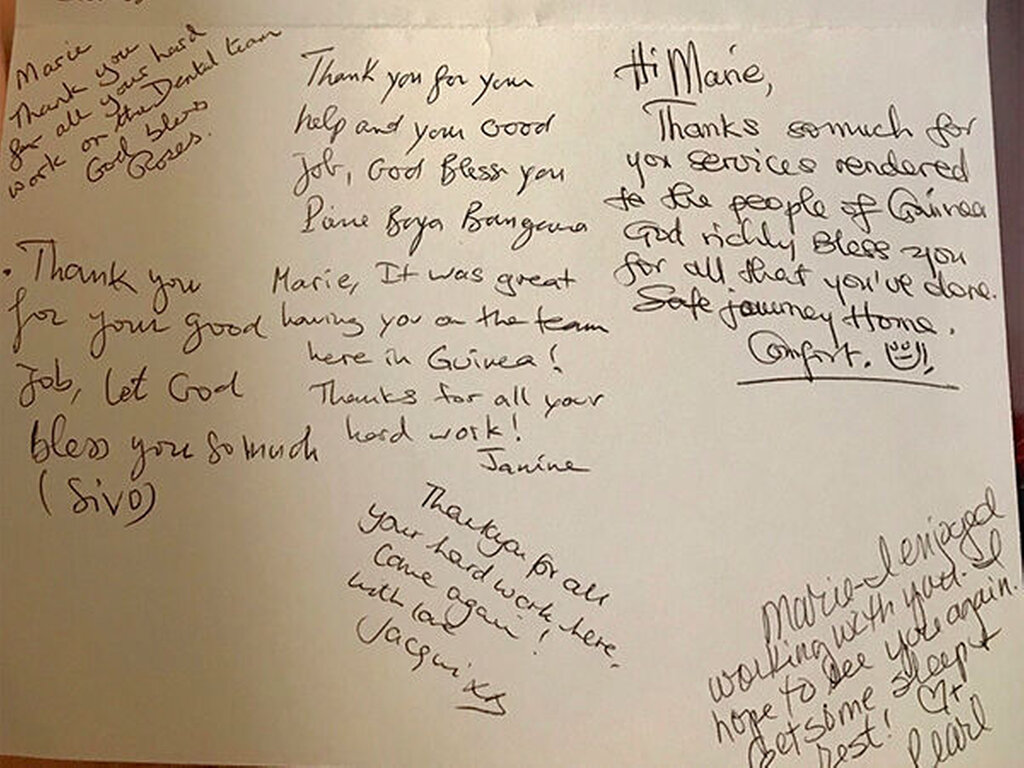 Marie
Thank you
for all your hard
work on the Dental team
God bless
Roses.
Thank you for your
help and your Good
Job, God Bless you
Boya Bangoura
Hi Marie,
Thanks somuch for
you services rendered
to the people of Guinea
God richly Bless you
for all that you've done.
Safe journey Home.
Comfort.
. Thank you
for your good
Job, let God
bless you so much
(Sivo)
Marie, It was great
having you on the team
here in Guinea!
Thanks for all your
hard work!
Janine
Thankyou for all
your hard work here,
Come again!
with love
Jacqui
Marie-I enjoyed
working with you. I
hope to see you again.
Get some sleep +
rest! ♡
Pearl